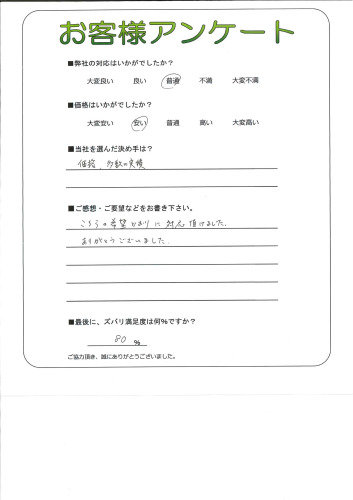 お客様アンケート
■弊社の対応はいかがでしたか?
大変良い 良い 普通 不満 大変不満
■価格はいかがでしたか?
大変安い 安い 普通 高い 大変高い
■当社を選んだ決め手は?
価格、多数の実績
■ご感想・ご要望などをお書き下さい。
こちらの希望どおりに対応頂けました。
ありがとうございました。
■最後に、ズバリ満足度は何%ですか?
80 %
ご協力頂き、誠にありがとうございました。